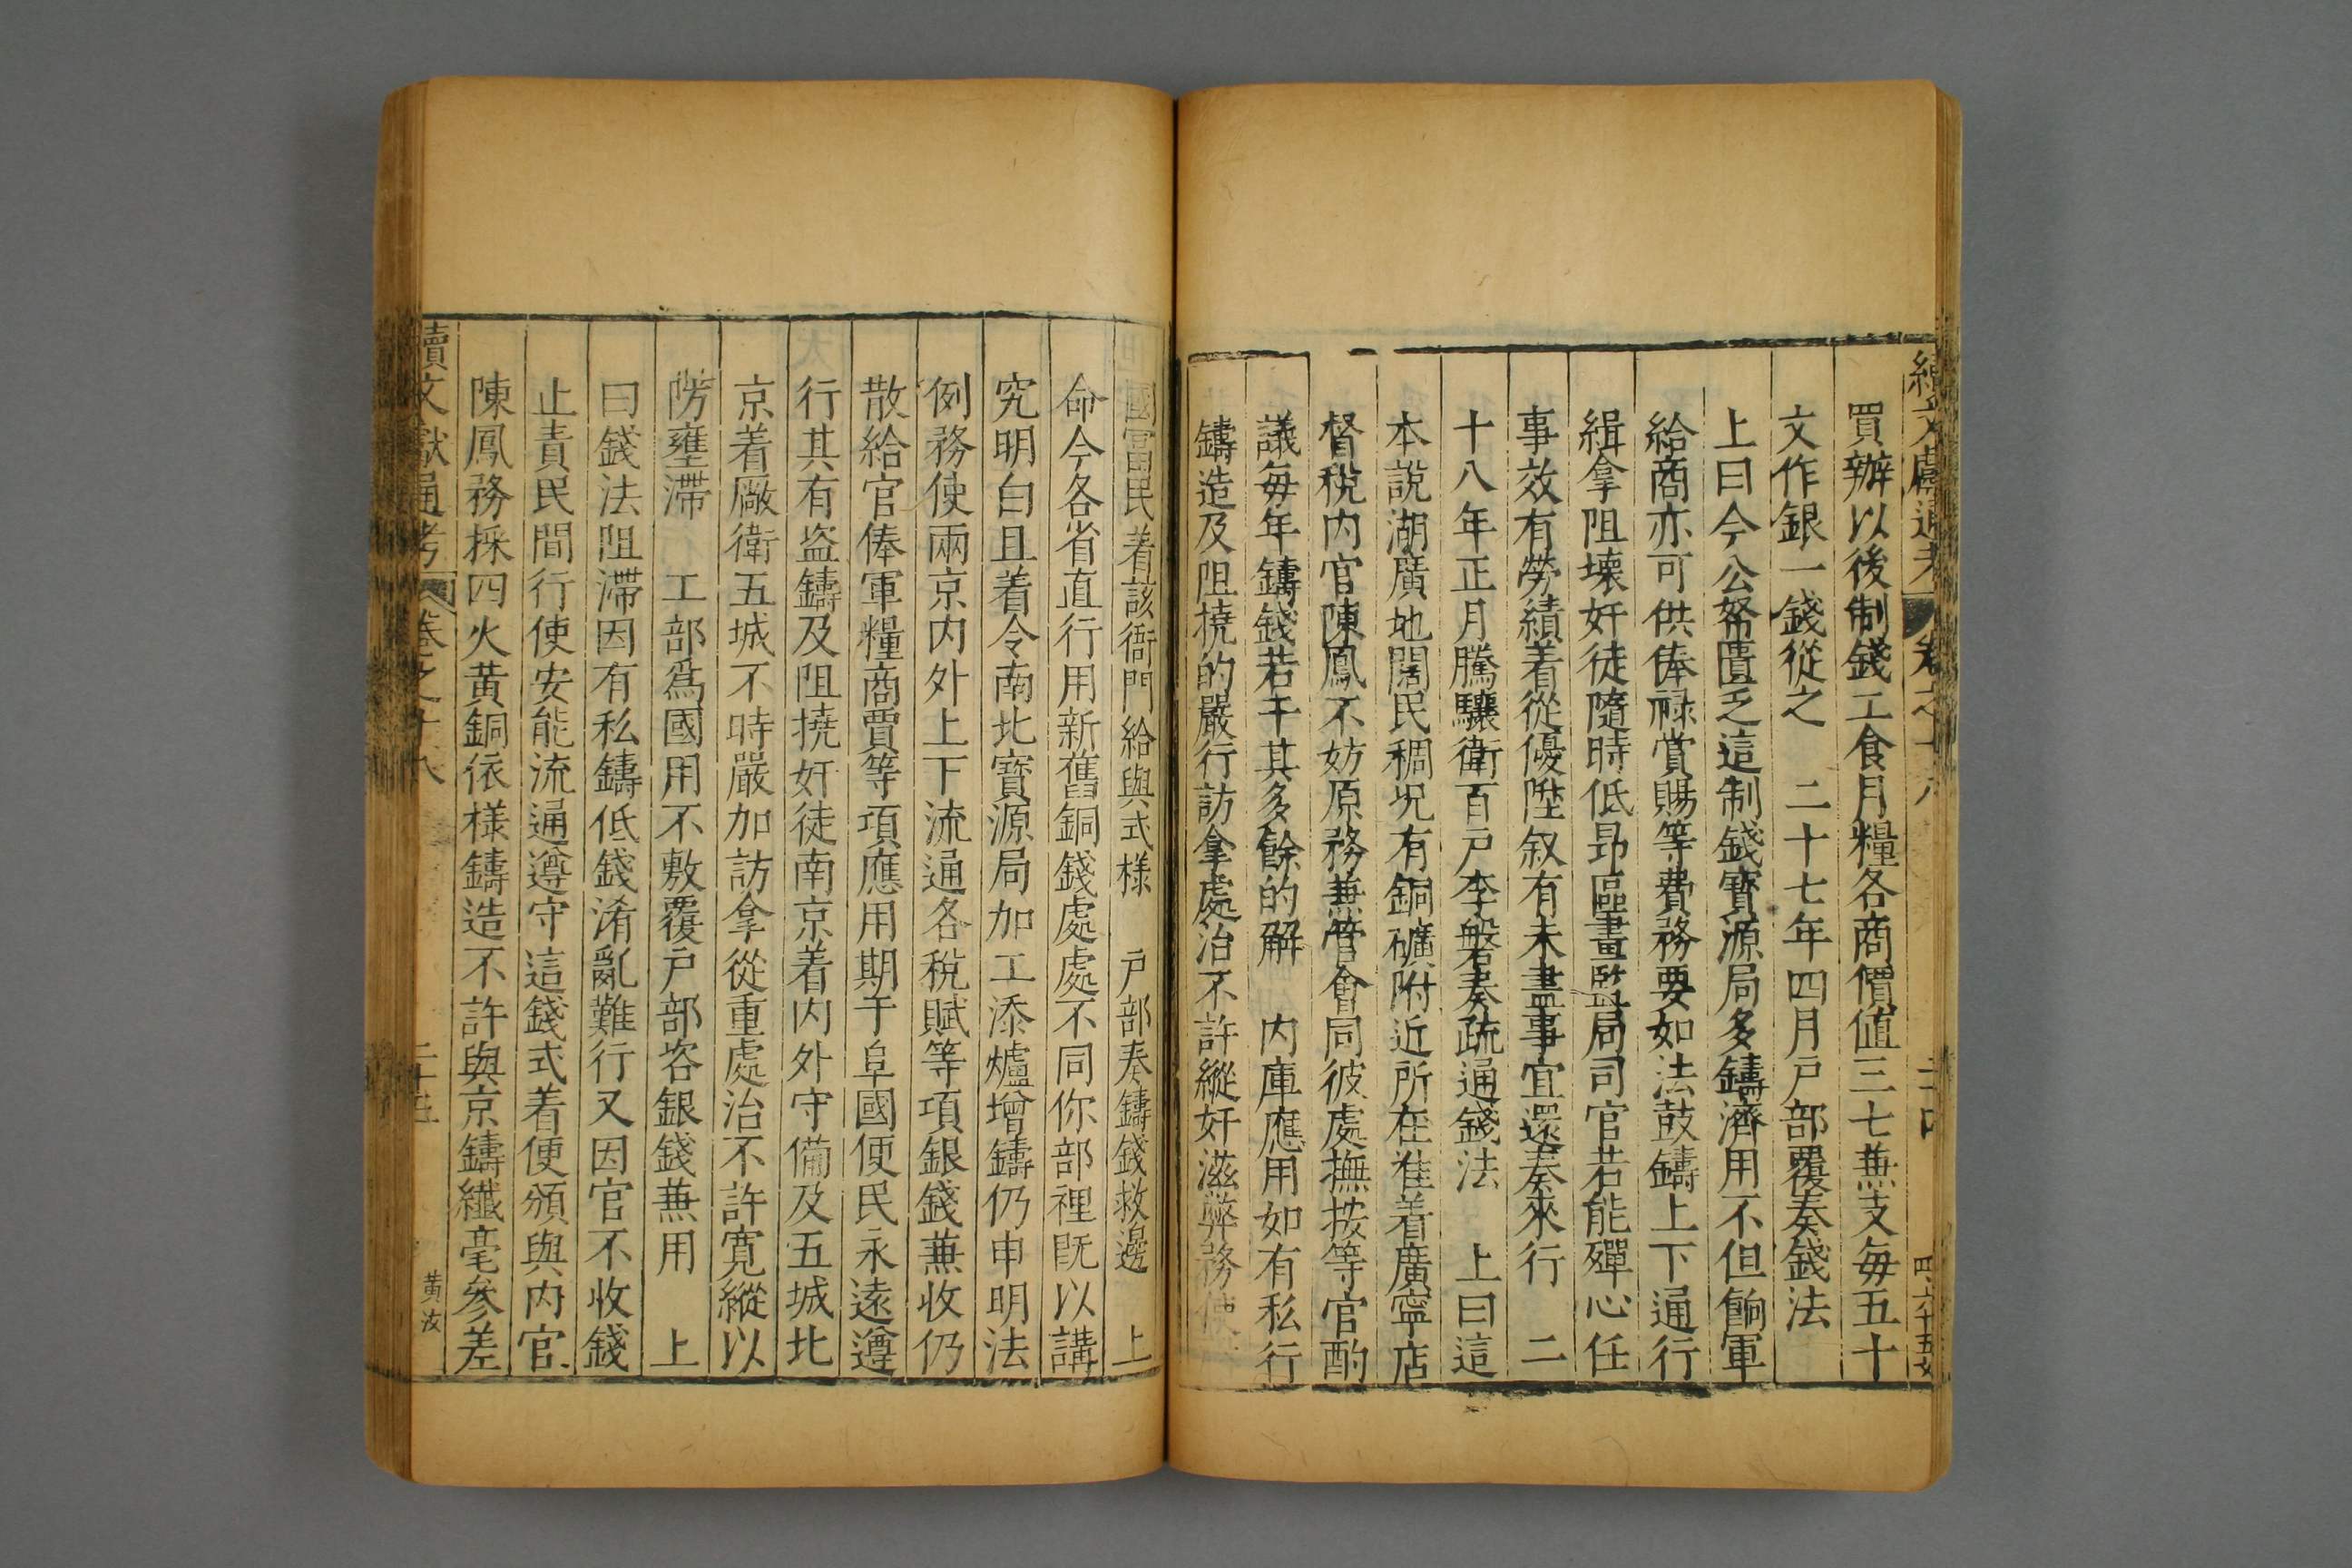 續文獻通考
卷之十八
二十四
四六十五文
買辦以後制錢工食月糧各商價値三七兼支每五十
文作銀一錢從之　二十七年四月戸部覆奏錢法
上曰今公帑匱乏這制錢寳源局多鑄濟用不但餉軍
給商亦可供俸禄賞賜等費務要如法鼓鑄上下通行
緝拿阻壊奸徒隨時低昻區畫監局司官若能殫心任
事效有勞績着從優陞叙有未盡事宜還奏來行　二
十八年正月騰驤衛百戸李磐奏疏通錢法　上曰這
本說湖廣地闊民稠況有銅礦附近所在准着廣寧店
督稅内官陳鳳不妨原務兼管會同彼處撫按等官酌
議每年鑄錢若干其多餘的解　内庫應用如有私行
鑄造及阻撓的嚴行訪拿處治不許縱奸滋弊務使
國富民着該衙門給與式様　戸部奏鑄錢救邊　上
命今各省直行用新舊銅錢處處不同你部裡旣以講
究明白且着令南北寳源局加工添爐增鑄仍申明法
例務使兩京内外上下流通各稅賦等項銀錢兼收仍
散給官俸軍糧商賈等項應用期于阜國便民永遠遵
行其有盗鑄及阻撓奸徒南京着内外守備及五城北
京着厰衛五城不時嚴加訪拿從重處治不許寛縱以
防壅滯　工部爲國用不敷覆戸部咨銀錢兼用　上
曰錢法阻滯因有私鑄低錢淆亂難行又因官不收錢
止責民間行使安能流通遵守這錢式着便頒與内官
陳鳳務採四火黄銅依様鑄造不許與京鑄纖毫參差
續文獻通考
卷之十八
二十五
黄汝